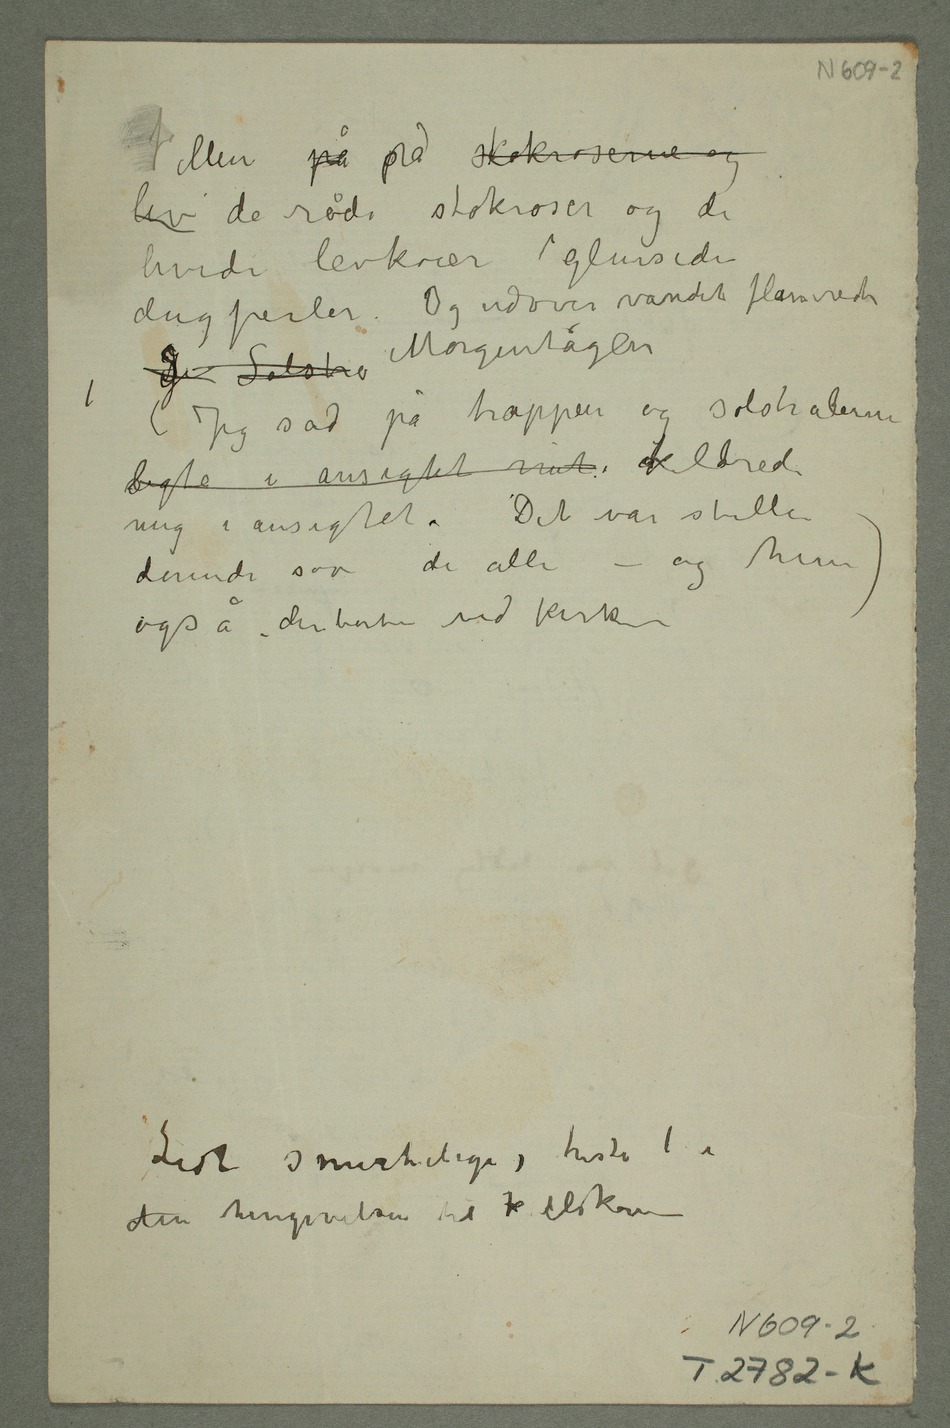 N 609-2
Men på på stokroserne og
lev de røde stokroser og de
hvide levkoier glinsede
dugperler. Og udover vandet flammede
Je Solstr Morgentågen
( Jeg sad på trappen og solstralerne
ligte i ansigtet mit. kildrede
mig i ansigtet. Det var stille
derinde sov de alle – og hun )
også derborte ved kirken
Lidt smertelige, triste i
den hengivelsen til K elskoven
N609-2
T 2782-K